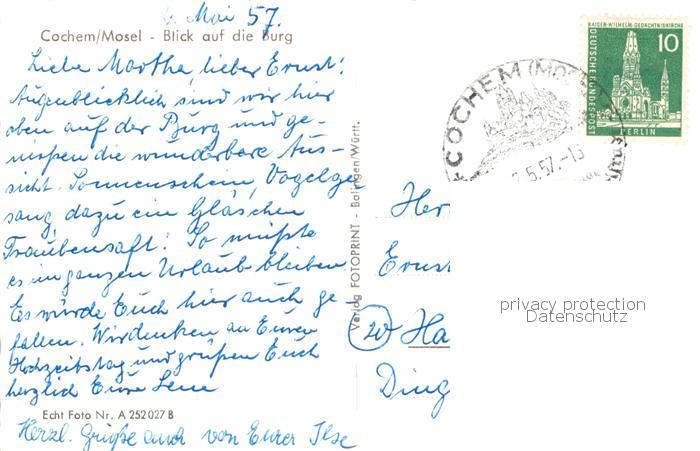 Mai 57.
Cochem/Mosel - Blick auf die Burg
Liebe Martha, lieber Ernst!
Augenblicklich sind wir hier
oben auf der Burg und ge-
nissen die wunderbare Aus-
sicht. Sonnenschein, Vogelge
sang, dazu ein Gläschen
Traubensaft! So müßte
es im ganzen Urlaub bleiben.
Es würde Euch hier auch ge-
fallen. Wir denken an Euren
Hochzeitstag und grüßen Euch
herzlich Eure Lene
Echt Foto Nr. A 252027 B
Herzl. Grüße auch von Eurer Ilse
Verlag FOTOPRINT - Balingen/Württ.
COCHEM (MOSEL
.5.57.-
KAISER-WILHELM-GEDÄCHTNISKIRCHE
10
DEUTSCHE BUNDESPOST
BERLIN
Her
Ernst
Ha
Ding
privacy protection
Datenschutz